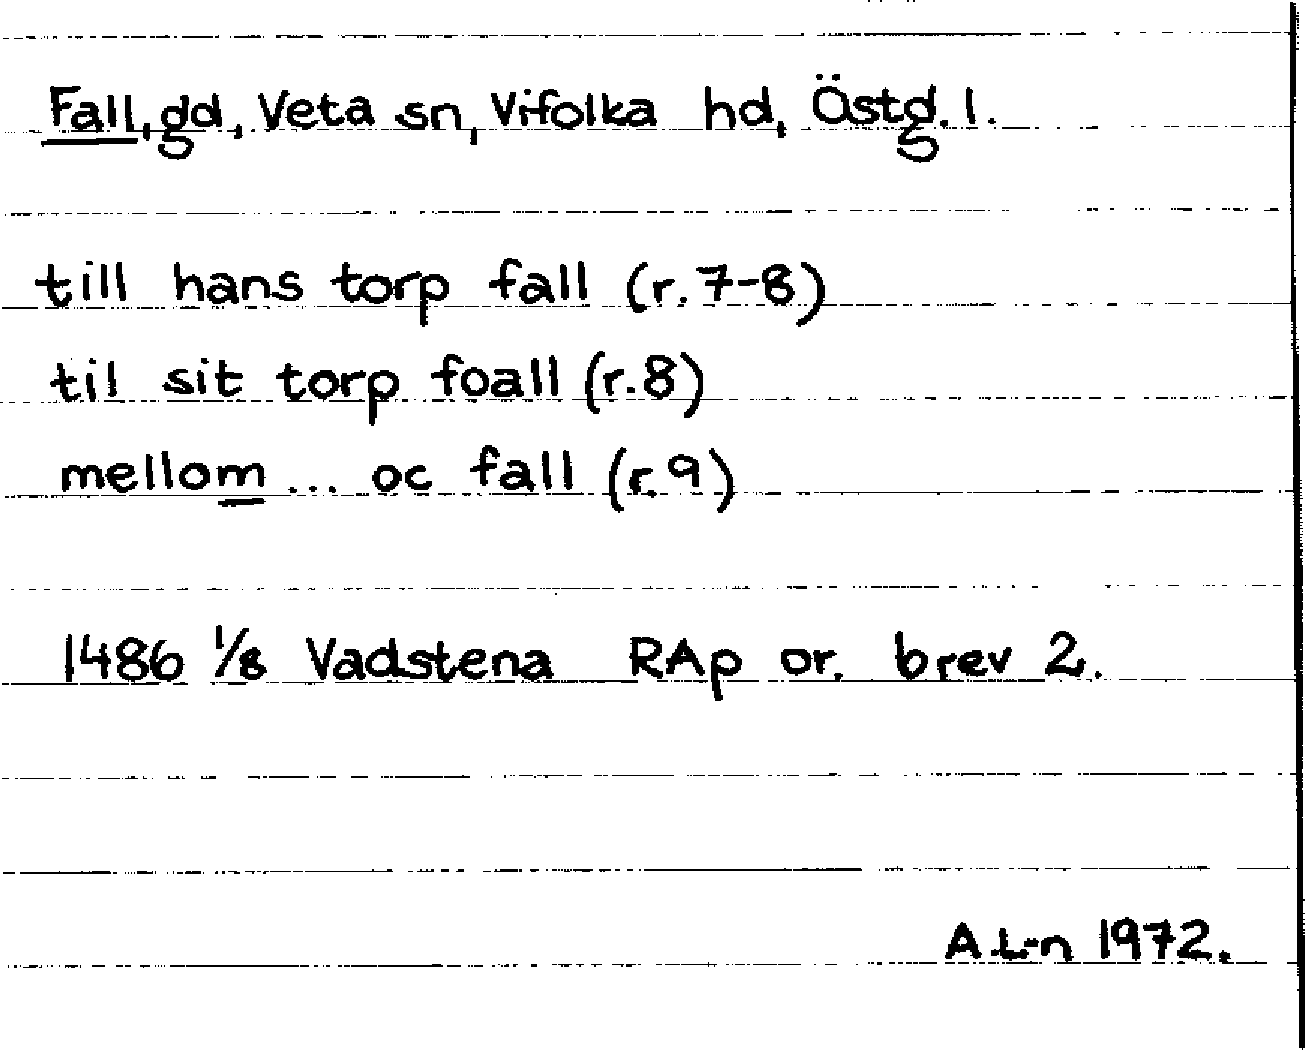 Fall, gd, Veta sn, Vifolka hd, Östg. l.
till hans torp fall (r. 7-8)
til sit torp foall (r.8)
mellom ... oc fall (r.9)
1486 1/8 Vadstena RAp or. brev 2.
A.L-n 1972.